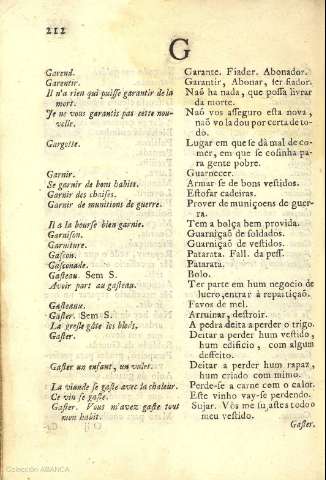 212
G
Garend. Garante. Fiador. Abonador.
Garentir. Garantir, Abonar, ser fiador.
Il n'a rien qui puisse garantir de la Naõ ha nada, que possa livrar
mort. da morte.
Je ne vous garantis pas cette nou- Naõ vos asseguro esta nova,
velle. naõ vo la dou por certa de to-
do.
Gargotte. Lugar em que se dá mal de co-
mer, em que se cosinha pa-
ra gente pobre.
Garnir. Guarnecer.
Se garnir de bons habits. Armar se de bons vestidos.
Garnir des chaises. Estofar cadeiras.
Garnir de munitions de guerre. Prover de muniçoens de guer-
ra.
Il a la bourse bien garnie. Tem a bolça bem provida.
Garnison. Guarniçaõ de soldados.
Garniture. Guarniçaõ de vestidos.
Gascon. Patarata. Fall. da pess.
Gasconade. Patarata.
Gasteau. Sem S. Bolo.
Avoir part au gasteau. Ter parte em hum negocio de
lucro, entrar á repartiçaõ.
Gasteaux. Favos de mel.
Gaster. Sem S. Arruinar, destroir.
La gresle gâte les bleds. A pedra deita a perder o trigo.
Gaster. Deitar a perder hum vestido,
hum edificio, com algum
deffeito.
Gaster un enfant, un valet. Deitar a perder hum rapaz,
hum criado com mimo.
La viande se gaste avec la chaleur. Perde-se a carne com o calor.
Ce vin se gaste. Este vinho vay-se perdendo.
Gaster. Vous m'avez gasté tout Sujar. Vós me sujastes todo o
mon habit. meu vestido.
Gaster.
Colección ABANCA